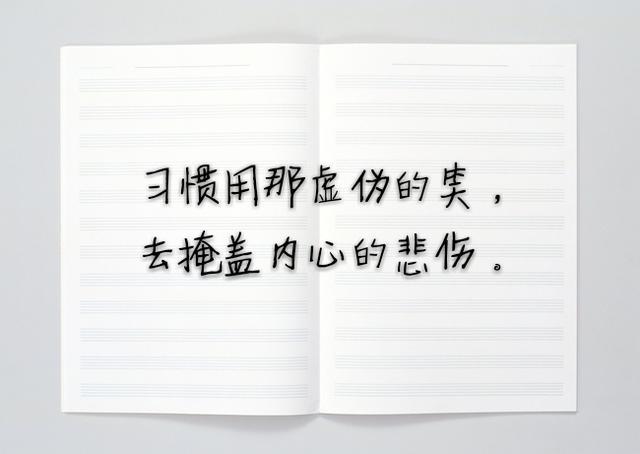 习惯用那虚伪的笑，
去掩盖内心的悲伤。